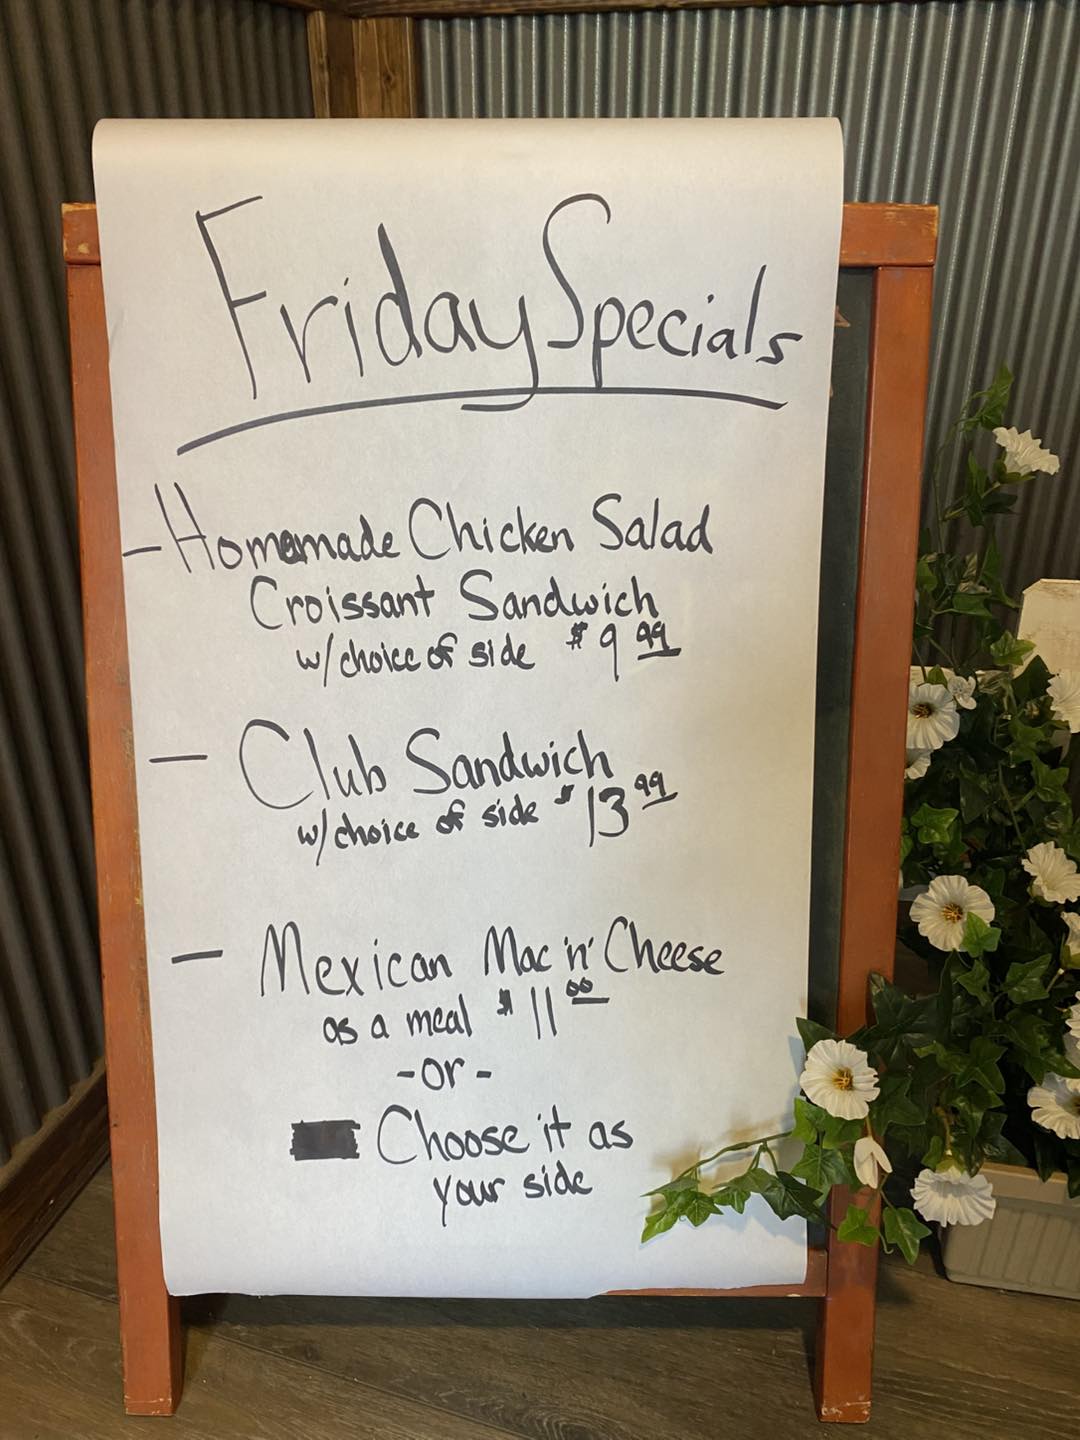 Friday Specials
- Homemade Chicken Salad
Croissant Sandwich
w/choice of side $9 99
- Club Sandwich
w/choice of side $13 99
- Mexican Mac 'n' Cheese
as a meal $11 00
- or -
Choose it as
your side